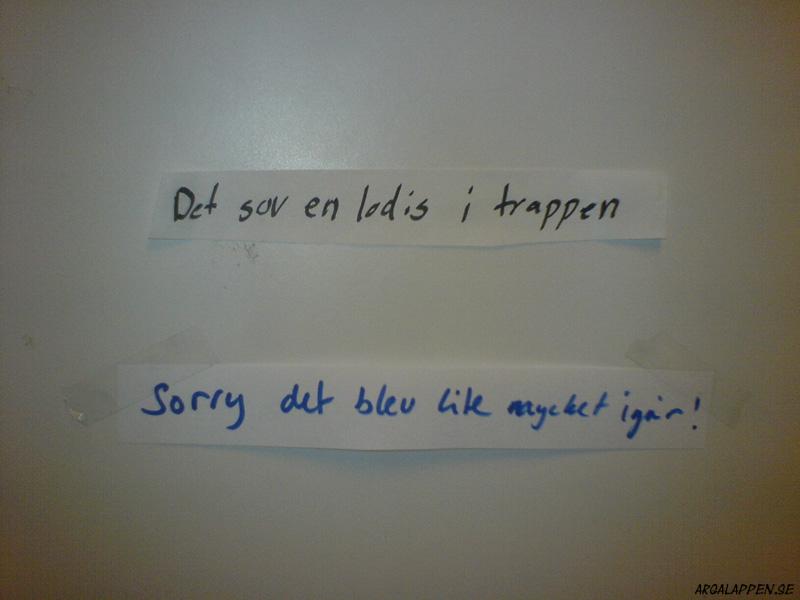 Det sov en lodis i trappen
Sorry det blev lite mycket igår!
ARGALAPPEN.SE